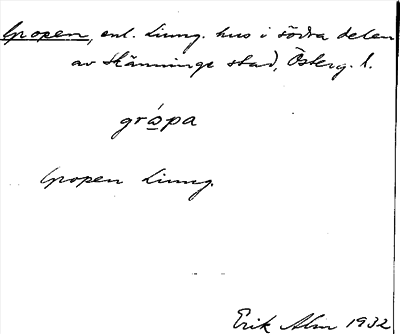 Gropen, enl. Ljung. hus i södra delen
av Skänninge stad, Österg. l.
grópa
Gropen Ljung.
Erik Alm 1932